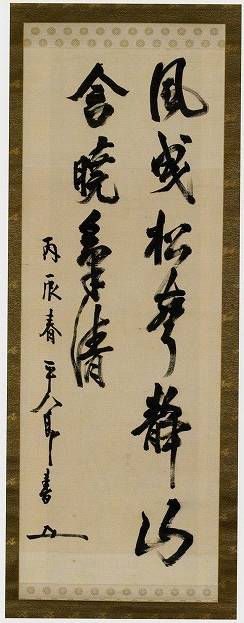 風曳松聲靜山
含曉氣清
丙辰春平八郎書